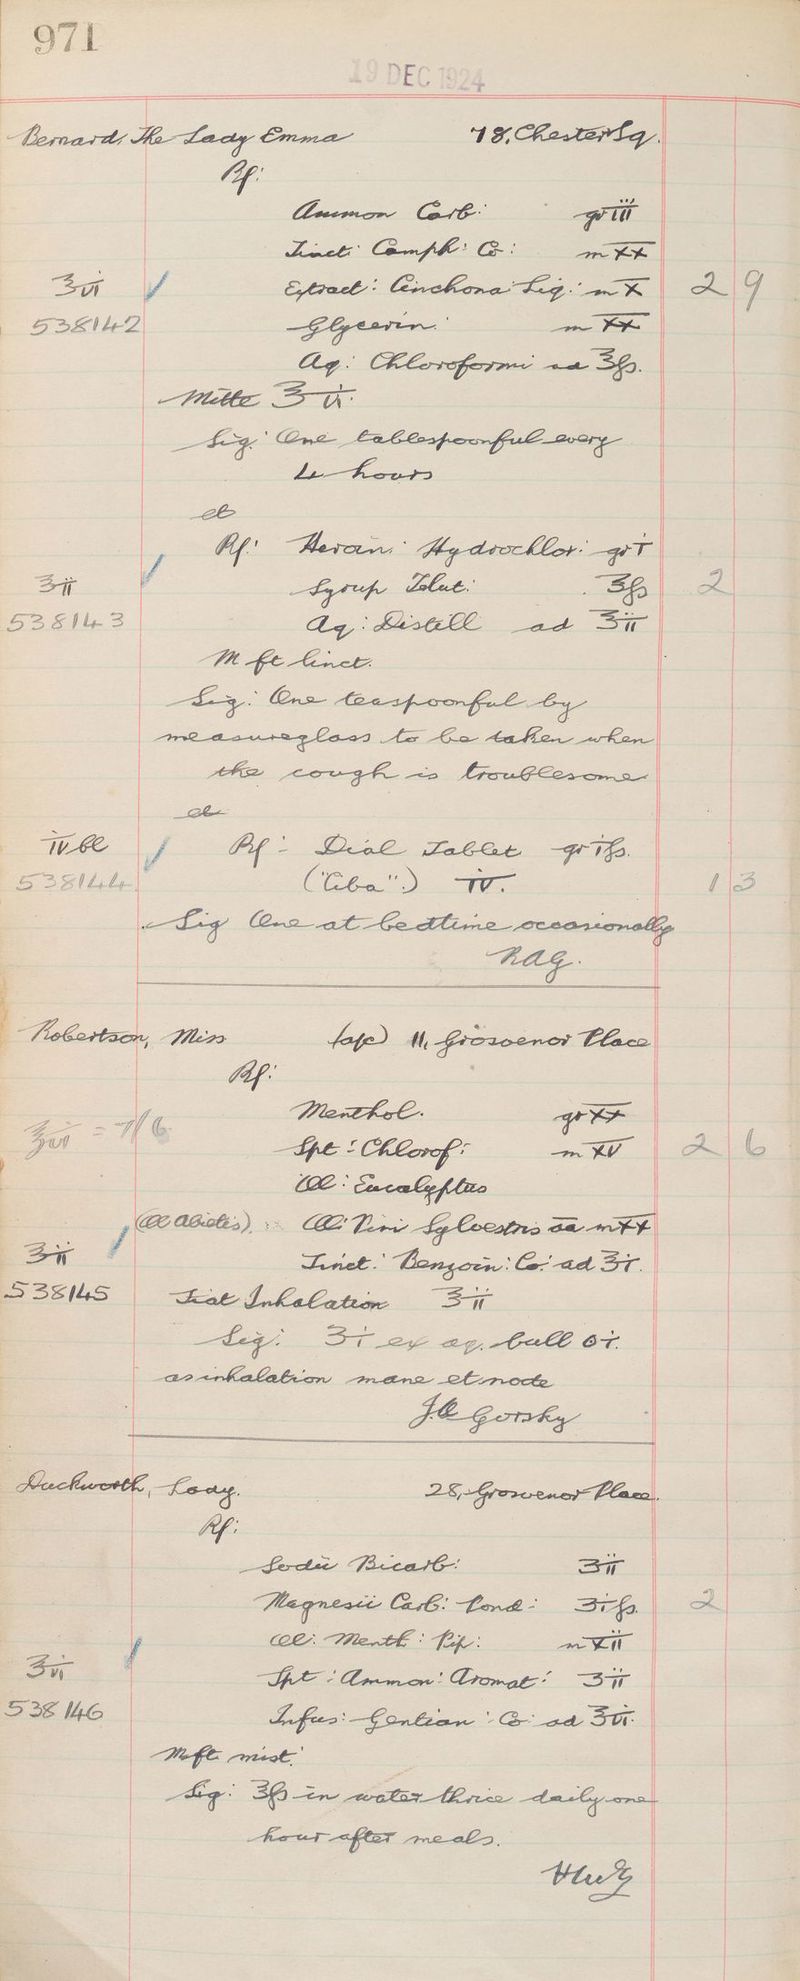 971
19 DEC 1924
Bernard, The Lady Emma 78, Chester Sq.
Rx:
Ammon Carb: gr iii
Tinct: Camph: Co: m xx
ʒvi Extract: Cinchona: Liq: m x 2 9
538142 Glycerin: m xx
Aq: Chloroformi ad ℥ſs.
Mitte ℥vi.
Sig: One tablespoonful every
4 hours
et
Rx: Heroin: Hydrochlor: gr i
℥ii Syrup Tolut: ℥ſs 2
538143 Aq: Distill ad ℥ii
M ft linct.
Sig: One teaspoonful by
measureglass to be taken when
the cough is troublesome
et
iv bl Rx: Dial Tablet gr iſs.
538144 ("Ciba".) iv. 1 3
Sig One at bedtime occasionally
Robertson, Miss 11, Grosvenor Place
Rx:
Menthol. gr xx
= 7/6 Spt: Chlorof: m xv 2 6
Ol: Eucalyptus
(Ol Abietis) Ol: Pini Sylvestris aa m xx
℥ii Tinct: Benzoin: Co: ad ℥i.
538145 Fiat Inhalation ℥ii
Sig: ʒi ex aq. bull Oi.
as inhalation mane et nocte
Gorsky
Duckworth, Lady. 28, Grosvenor Place.
Rx:
Sodii Bicarb: ʒii
Magnesii Carb: Pond: ʒiſs. 2
Ol: Menth: Pip: m xii
℥vi Spt: Ammon: Aromat: ʒii
538146 Infus: Gentian: Co: ad ℥vi.
M ft mist:
Sig: ℥ſs in water thrice daily one
hour after meals.